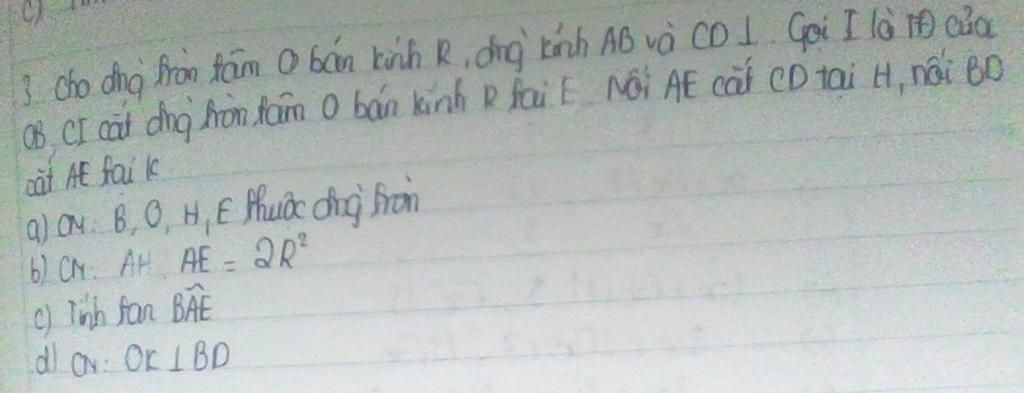 c)
3. Cho đng̀ tròn tâm O bán kính R, đng̀ kính AB và CD ⊥. Gọi I là TĐ của
OB, CI cắt đng̀ tròn tâm O bán kính R tại E. Nối AE cắt CD tại H, nối BD
cắt AE tại K
a) CM: B, O, H, E thuộc đng̀ tròn
b) CM: AH. AE = 2R²
c) Tính tan BÂE
d) CM: OK ⊥ BD